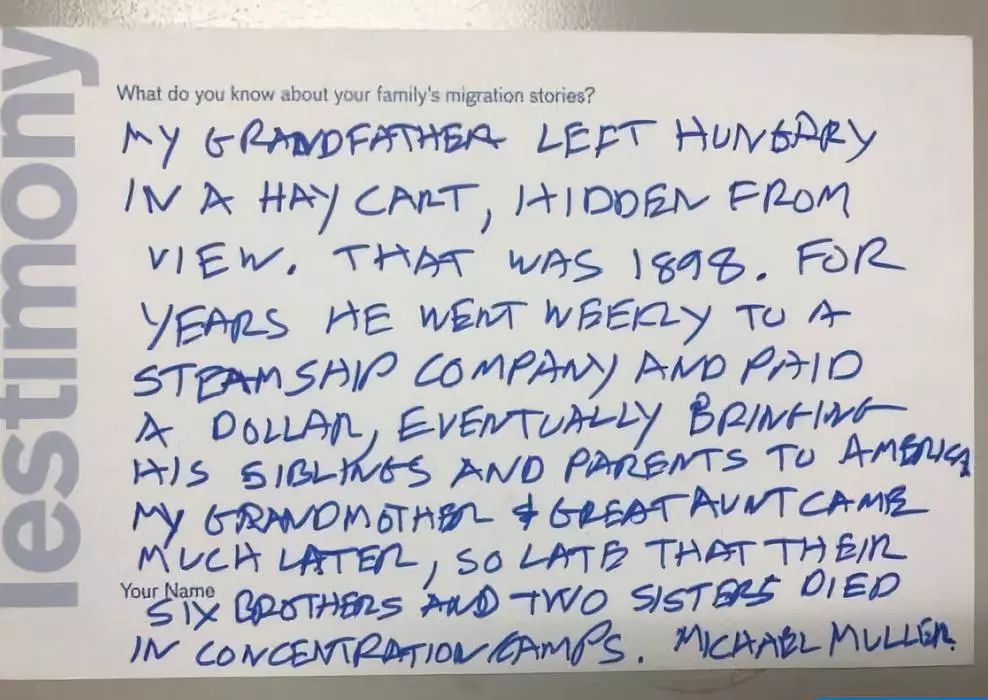 Testimony
What do you know about your family's migration stories?
MY GRANDFATHER LEFT HUNGARY
IN A HAY CART, HIDDEN FROM
VIEW. THAT WAS 1898. FOR
YEARS HE WENT WEEKLY TO A
STEAMSHIP COMPANY AND PAID
A DOLLAR, EVENTUALLY BRINGING
HIS SIBLINGS AND PARENTS TO AMERICA
MY GRANDMOTHER & GREAT AUNT CAME
MUCH LATER, SO LATE THAT THEIR
Your Name
SIX BROTHERS AND TWO SISTERS DIED
IN CONCENTRATION CAMPS. MICHAEL MULLER.